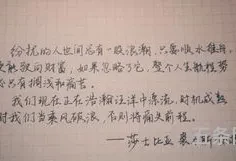 纷扰的人世间总有一股浪潮，只要顺水推舟，
便能致向财富，如果忽略了它，整个人生航程势
必只有搁浅和痛苦。
我们现在正在浩瀚汪洋中漂流，时机成熟
时我们当乘风破浪，否则将痛失前程。
——莎士比亚